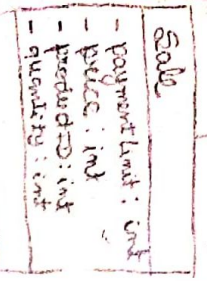 Sale
- payment Limit : int
- price : int
- product ID : int
- quantity : int